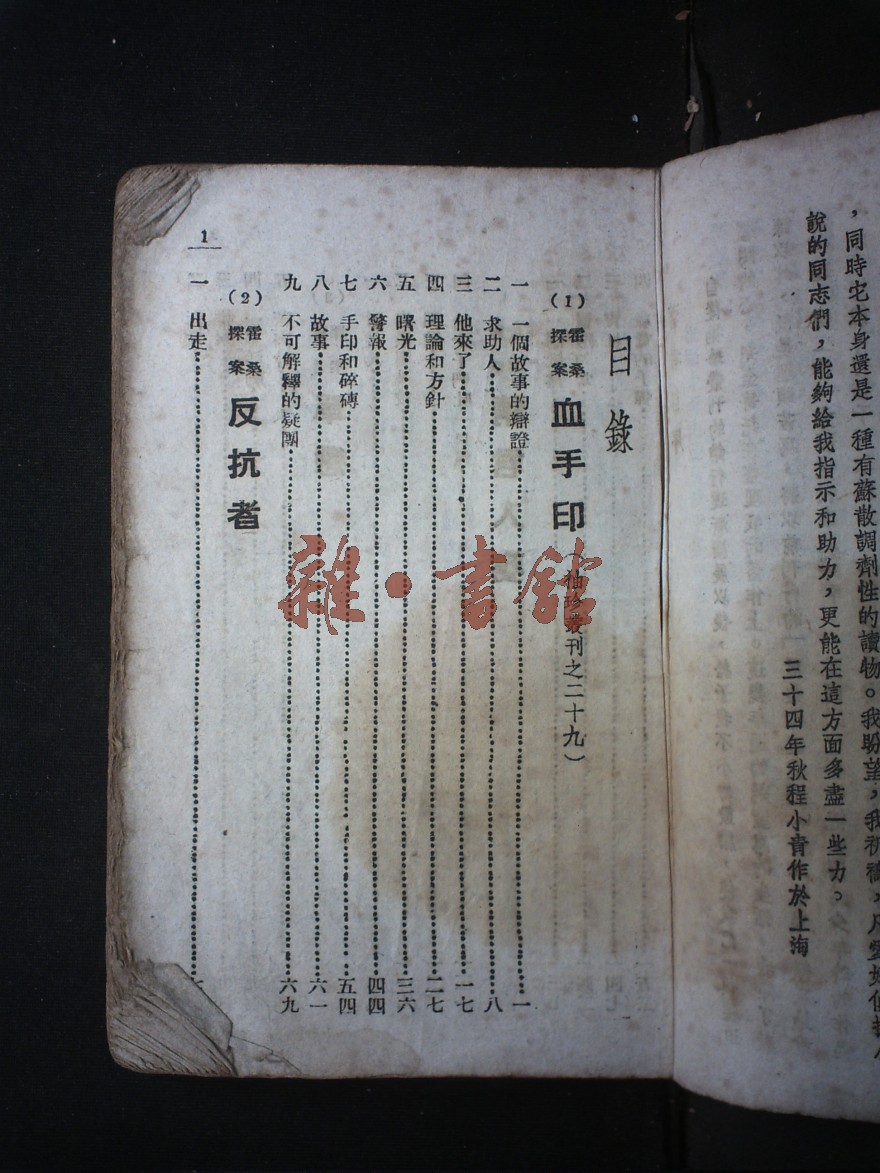 ，同時它本身還是一種有蘇散調劑性的讀物。我盼望，我祈禱，凡愛好偵探小
說的同志們，能夠給我指示和助力，更能在這方面多盡一些力。
三十四年秋程小青作於上海
目錄
(1) 霍桑探案 血手印（袖珍叢刊之二十九）
一 一個故事的辯證 一
二 求助人 八
三 他來了 一七
四 理論和方針 二七
五 曙光 三六
六 警報 四四
七 手印和碎磚 五四
八 故事 六一
九 不可解釋的疑團 六九
(2) 霍桑探案 反抗者
一 出走
1
雜·書館